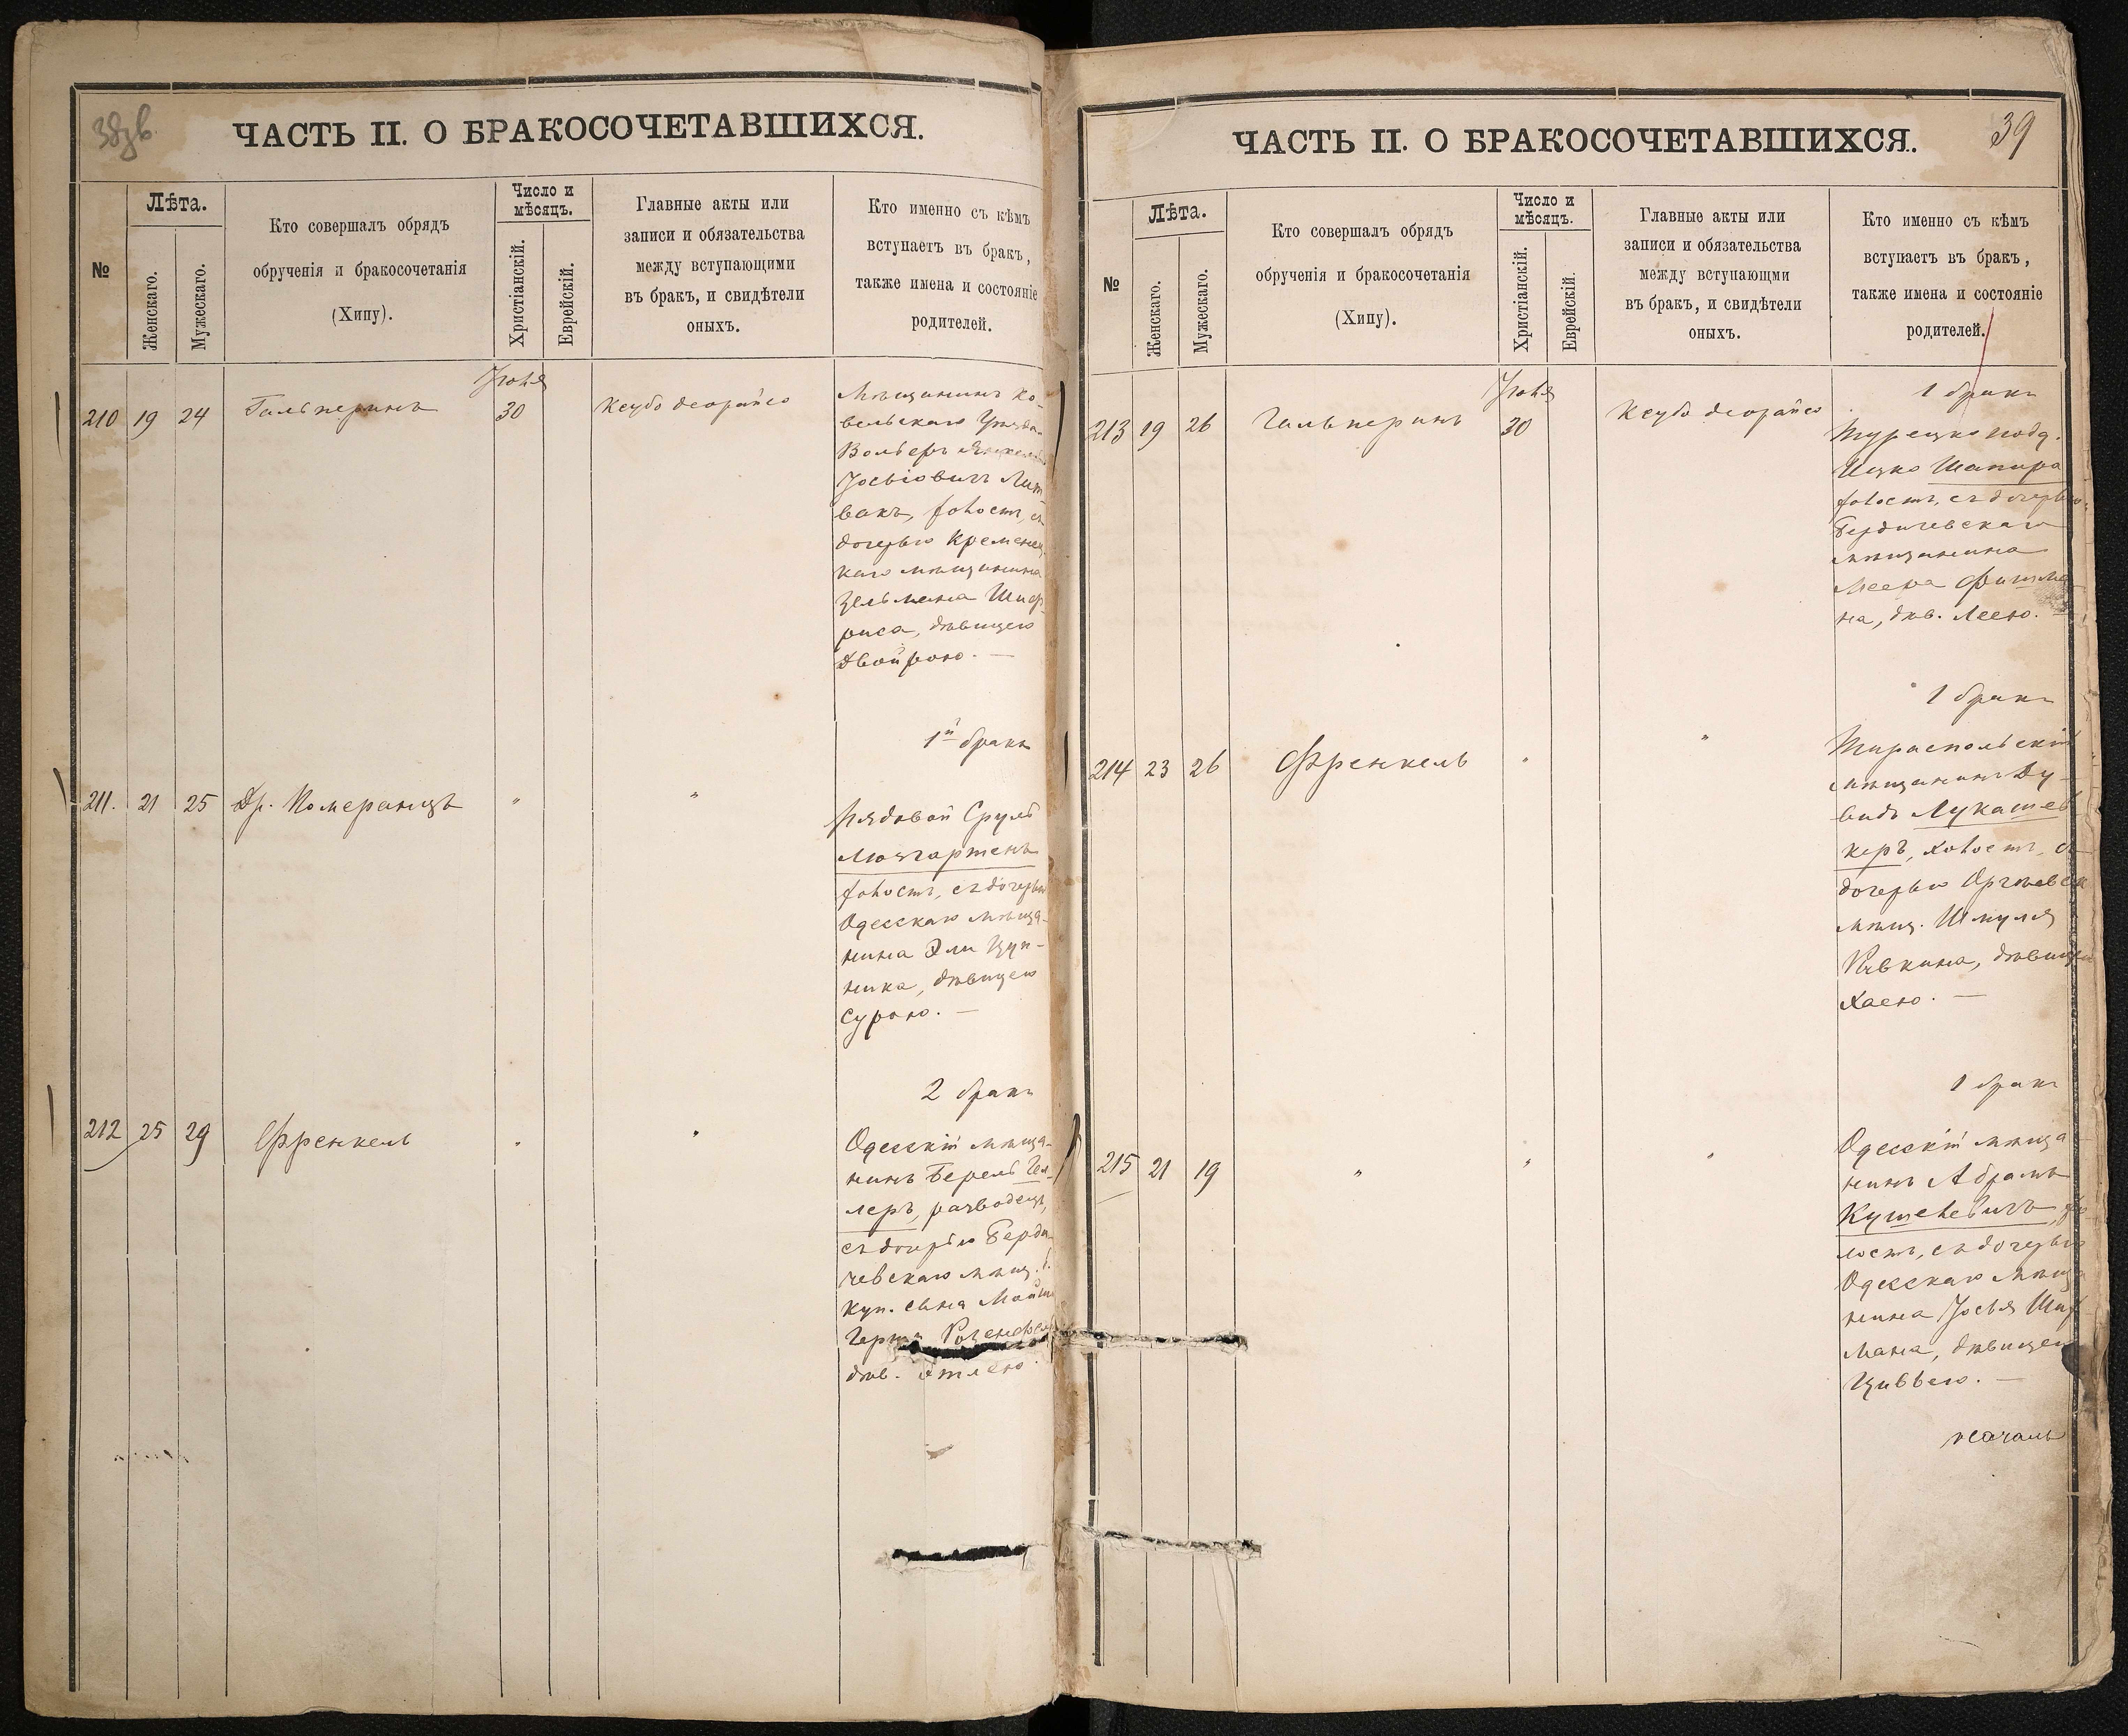 38зв
ЧАСТЬ II. О БРАКОСОЧЕТАВШИХСЯ.
№
Лѣта.
Женскаго.
Мужескаго.
Кто совершалъ обрядъ
обрученія и бракосочетанія
(Хипу).
Число и
мѣсяцъ.
Христіанскій.
Еврейскій.
Главные акты или
записи и обязательства
между вступающими
въ бракъ, и свидѣтели
оныхъ.
Кто именно съ кѣмъ
вступаетъ въ бракъ,
также имена и состояніе
родителей.
210 19 24 Гальперинъ
30
Ксубо деорайсо
Мѣщанинъ Ко-
вельскаго Уѣзда
Вольфъ
Іосьіовичъ Лит-
вакъ, холост, съ
дочерью Кременец-
каго мѣщанина
Зельмана Шиф-
риса, дѣвицею
Двойрою. —
1й бракъ
211. 21 25 Др. Померанцъ " "
Рядовой Сруль
Мозгартенъ
холостъ, съ дочерью
Одесскаго мѣща-
нина Эли Цуп-
ника, дѣвицею
Сурою. —
2 бракъ
212 25 29 Френкель " "
Одесскій мѣща-
нинъ Берель Гел-
леръ, разводецъ,
съ дочерью Берди-
чевскаго мѣщ.
куп. сына
дѣв. Этлею.
39
ЧАСТЬ II. О БРАКОСОЧЕТАВШИХСЯ.
№
Лѣта.
Женскаго.
Мужескаго.
Кто совершалъ обрядъ
обрученія и бракосочетанія
(Хипу).
Число и
мѣсяцъ.
Христіанскій.
Еврейскій.
Главные акты или
записи и обязательства
между вступающми
въ бракъ, и свидѣтели
оныхъ.
Кто именно съ кѣмъ
вступаетъ въ бракъ,
также имена и состояніе
родителей.
1 бракъ
213 19 26 Гальперинъ
30
Ксубо деорайсо
Турецко подд.
Ицко Шапира
холостъ, съ дочерью
Бердичевскаго
мѣщанина
Меера Фишма-
на, дѣв. Леею.
1 бракъ
214 23 26 Френкель " "
Тираспольскій
мѣщанинъ Ду-
видъ Лукашев
керъ, холостъ, съ
дочерью
мѣщ. Шмуля
Ривкина, дѣвицею
Хаею. —
1 бракъ
215 21 19 " " "
Одесскій мѣща
нинъ Абрамъ
Кушелевичъ, хо
лостъ, съ дочерью
Одесскаго мѣща
нина Іосья Шиф
мана, дѣвицею
Цивьею. —